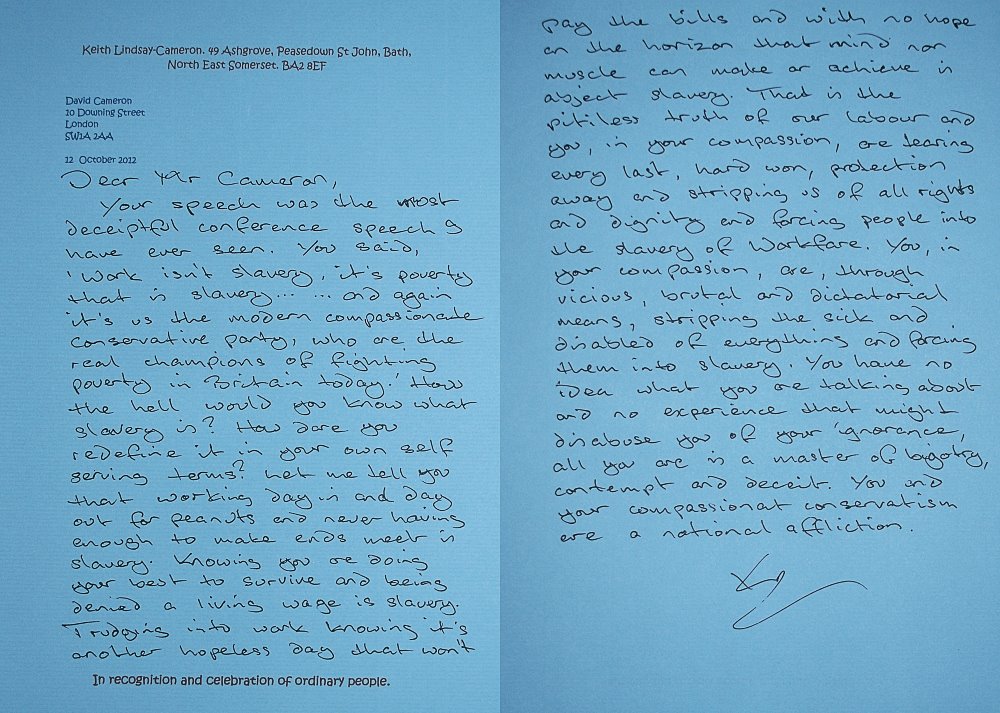 Keith Lindsay-Cameron. 49 Ashgrove, Peasedown St John, Bath,
North East Somerset. BA2 8EF
David Cameron
10 Downing Street
London
SW1A 2AA
12 October 2012
Dear Mr Cameron,
Your speech was the most
deceiptful conference speech I
have ever seen. You said,
'Work isn't slavery, it's poverty
that is slavery... ... and again
it's us the modern compassionate
conservative party, who are the
real champions of fighting
poverty in Britain today.' How
the hell would you know what
slavery is? How dare you
redefine it in your own self
serving terms? Let me tell you
that working day in and day
out for peanuts and never having
enough to make ends meet is
slavery. Knowing you are doing
your best to survive and being
denied a living wage is slavery.
Trudging into work knowing it's
another hopeless day that won't
In recognition and celebration of ordinary people.
pay the bills and with no hope
on the horizon that mind nor
muscle can make or achieve is
abject slavery. That is the
pitiless truth of our labour and
you, in your compassion, are tearing
every last, hard won, protection
away and stripping us of all rights
and dignity and forcing people into
the slavery of Workfare. You, in
your compassion, are, through
vicious, brutal and dictatorial
means, stripping the sick and
disabled of everything and forcing
them into slavery. You have no
idea what you are talking about
and no experience that might
disabuse you of your ignorance,
all you are is a master of bigotry,
contempt and deceit. You and
your compassionat conservatism
are a national affliction.